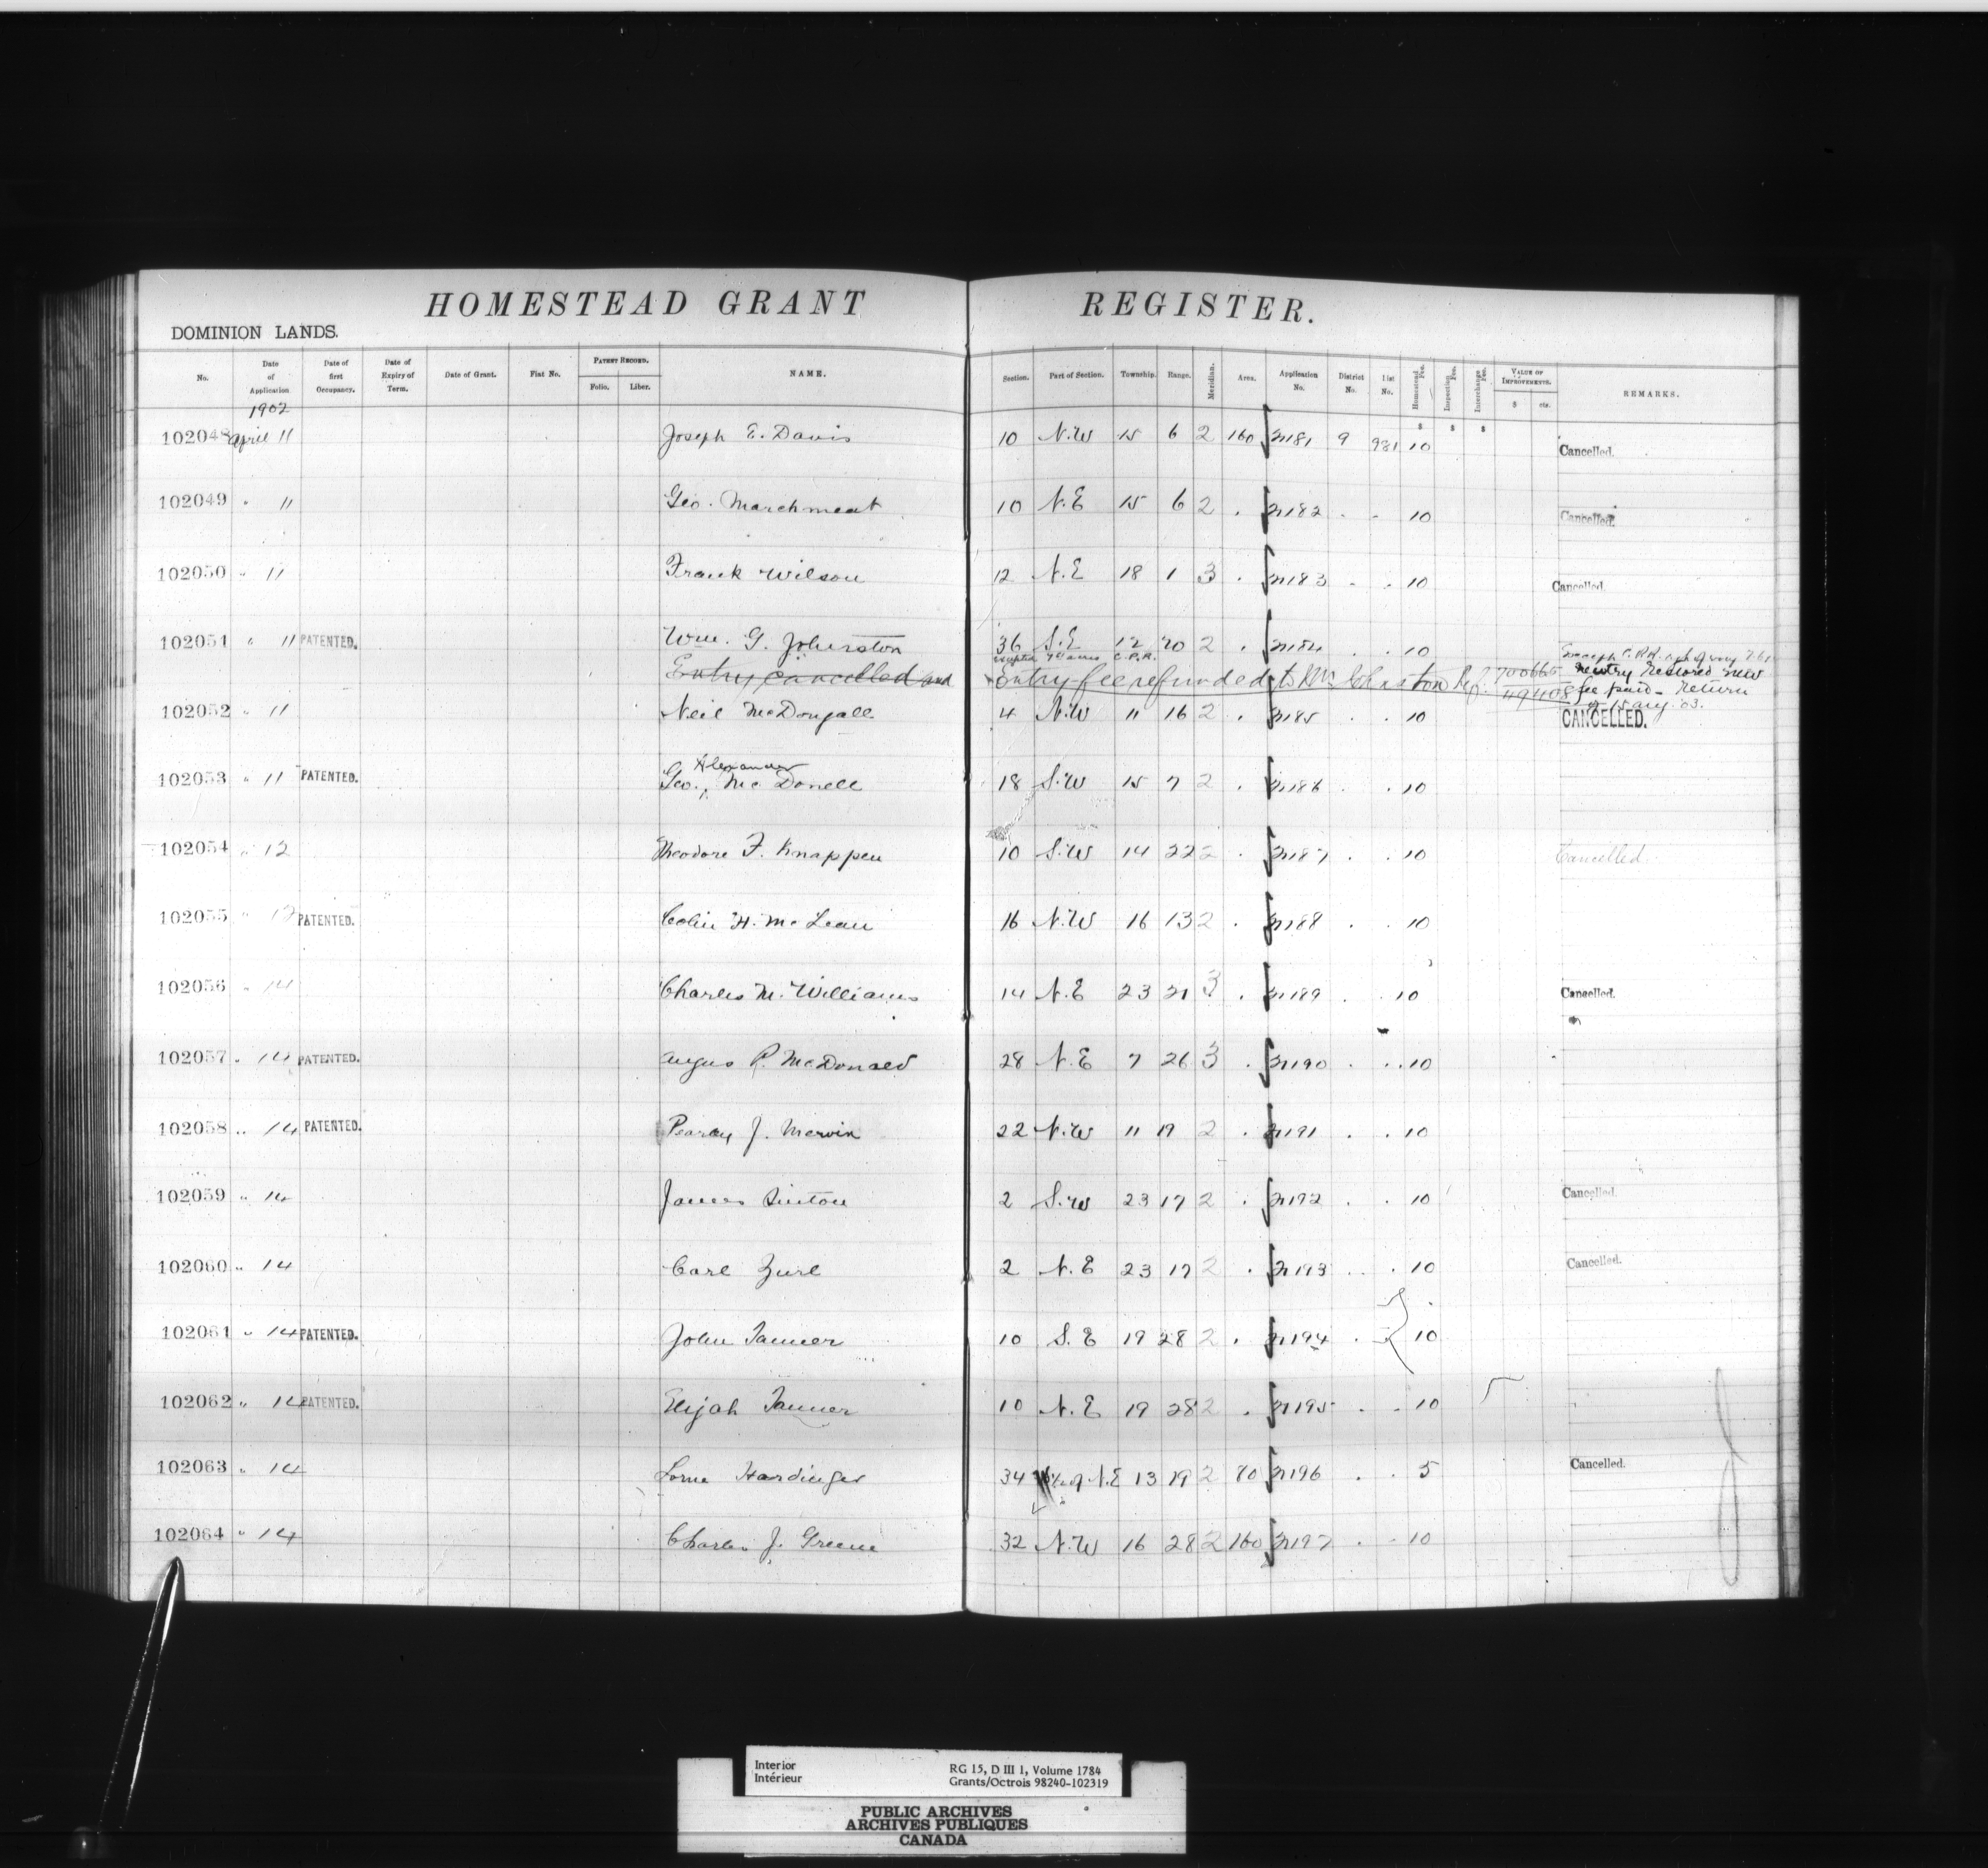 HOMESTEAD GRANT REGISTER.
DOMINION LANDS.
No. Date of Application Date of first Occupancy. Date of Expiry of Term. Date of Grant. Fiat No. PATENT RECORD. Folio. Liber. NAME. Section. Part of Section. Township. Range. Meridian. Area. Application No. District No. List No. Homestead Fee. Inspection Fee. Interchange Fee. VALUE OF IMPROVEMENTS. $ cts. REMARKS.
1902
$ $ $
102048 April 11 Joseph E. Davis 10 N.W 15 6 2 160 21181 9 931 10 Cancelled.
102049 " 11 Geo. Marchment 10 N.E 15 6 2 . 21182 . . 10 Cancelled.
102050 " 11 Frank Wilson 12 N.E 18 1 3 . 21183 . . 10 Cancelled.
102051 " 11 PATENTED. Wm. G. Johnston 36 S.E 12 20 2 . 21184 . . 10
C.P.R.
Entry cancelled and entry fee refunded to Johnston Ref. 700665
entry restored new
fee paid - Return
15 Aug. 03.
102052 " 11 Neil McDougall 4 N.W 11 16 2 . 21185 . . 10 CANCELLED.
Alexander
102053 " 11 PATENTED. Geo., McDonell 18 S.W 15 7 2 . 21186 . . 10
102054 " 12 Theodore F. Knappen 10 S.W 14 22 2 . 21187 . . 10 Cancelled
102055 " 12 PATENTED. Colin H. McLean 16 N.W 16 13 2 . 21188 . . 10
102056 " 14 Charles M. Williams 14 N.E 23 21 3 . 21189 . . 10 Cancelled.
102057 " 14 PATENTED. Angus R. McDonald 28 N.E 7 26 3 . 21190 . . 10
102058 " 14 PATENTED. Pearcy J. Mervin 22 N.W 11 19 2 . 21191 . . 10
102059 " 14 James Sinton 2 S.W 23 17 2 . 21192 . . 10 Cancelled.
102060 " 14 Carl Zurl 2 N.E 23 17 2 . 21193 . . 10 Cancelled.
102061 " 14 PATENTED. John Tanner 10 S.E 19 28 2 . 21194 . 10
102062 " 14 PATENTED. Elijah Tanner 10 N.E 19 28 2 . 21195 . . 10
102063 " 14 Lorne Hardinger 34 of N.E 13 19 2 80 21196 . . 5 Cancelled.
102064 " 14 Charles J. Greene 32 N.W 16 28 2 160 21197 . . 10
Interior
Intérieur
RG 15, D III 1, Volume 1784
Grants/Octrois 98240-102319
PUBLIC ARCHIVES
ARCHIVES PUBLIQUES
CANADA